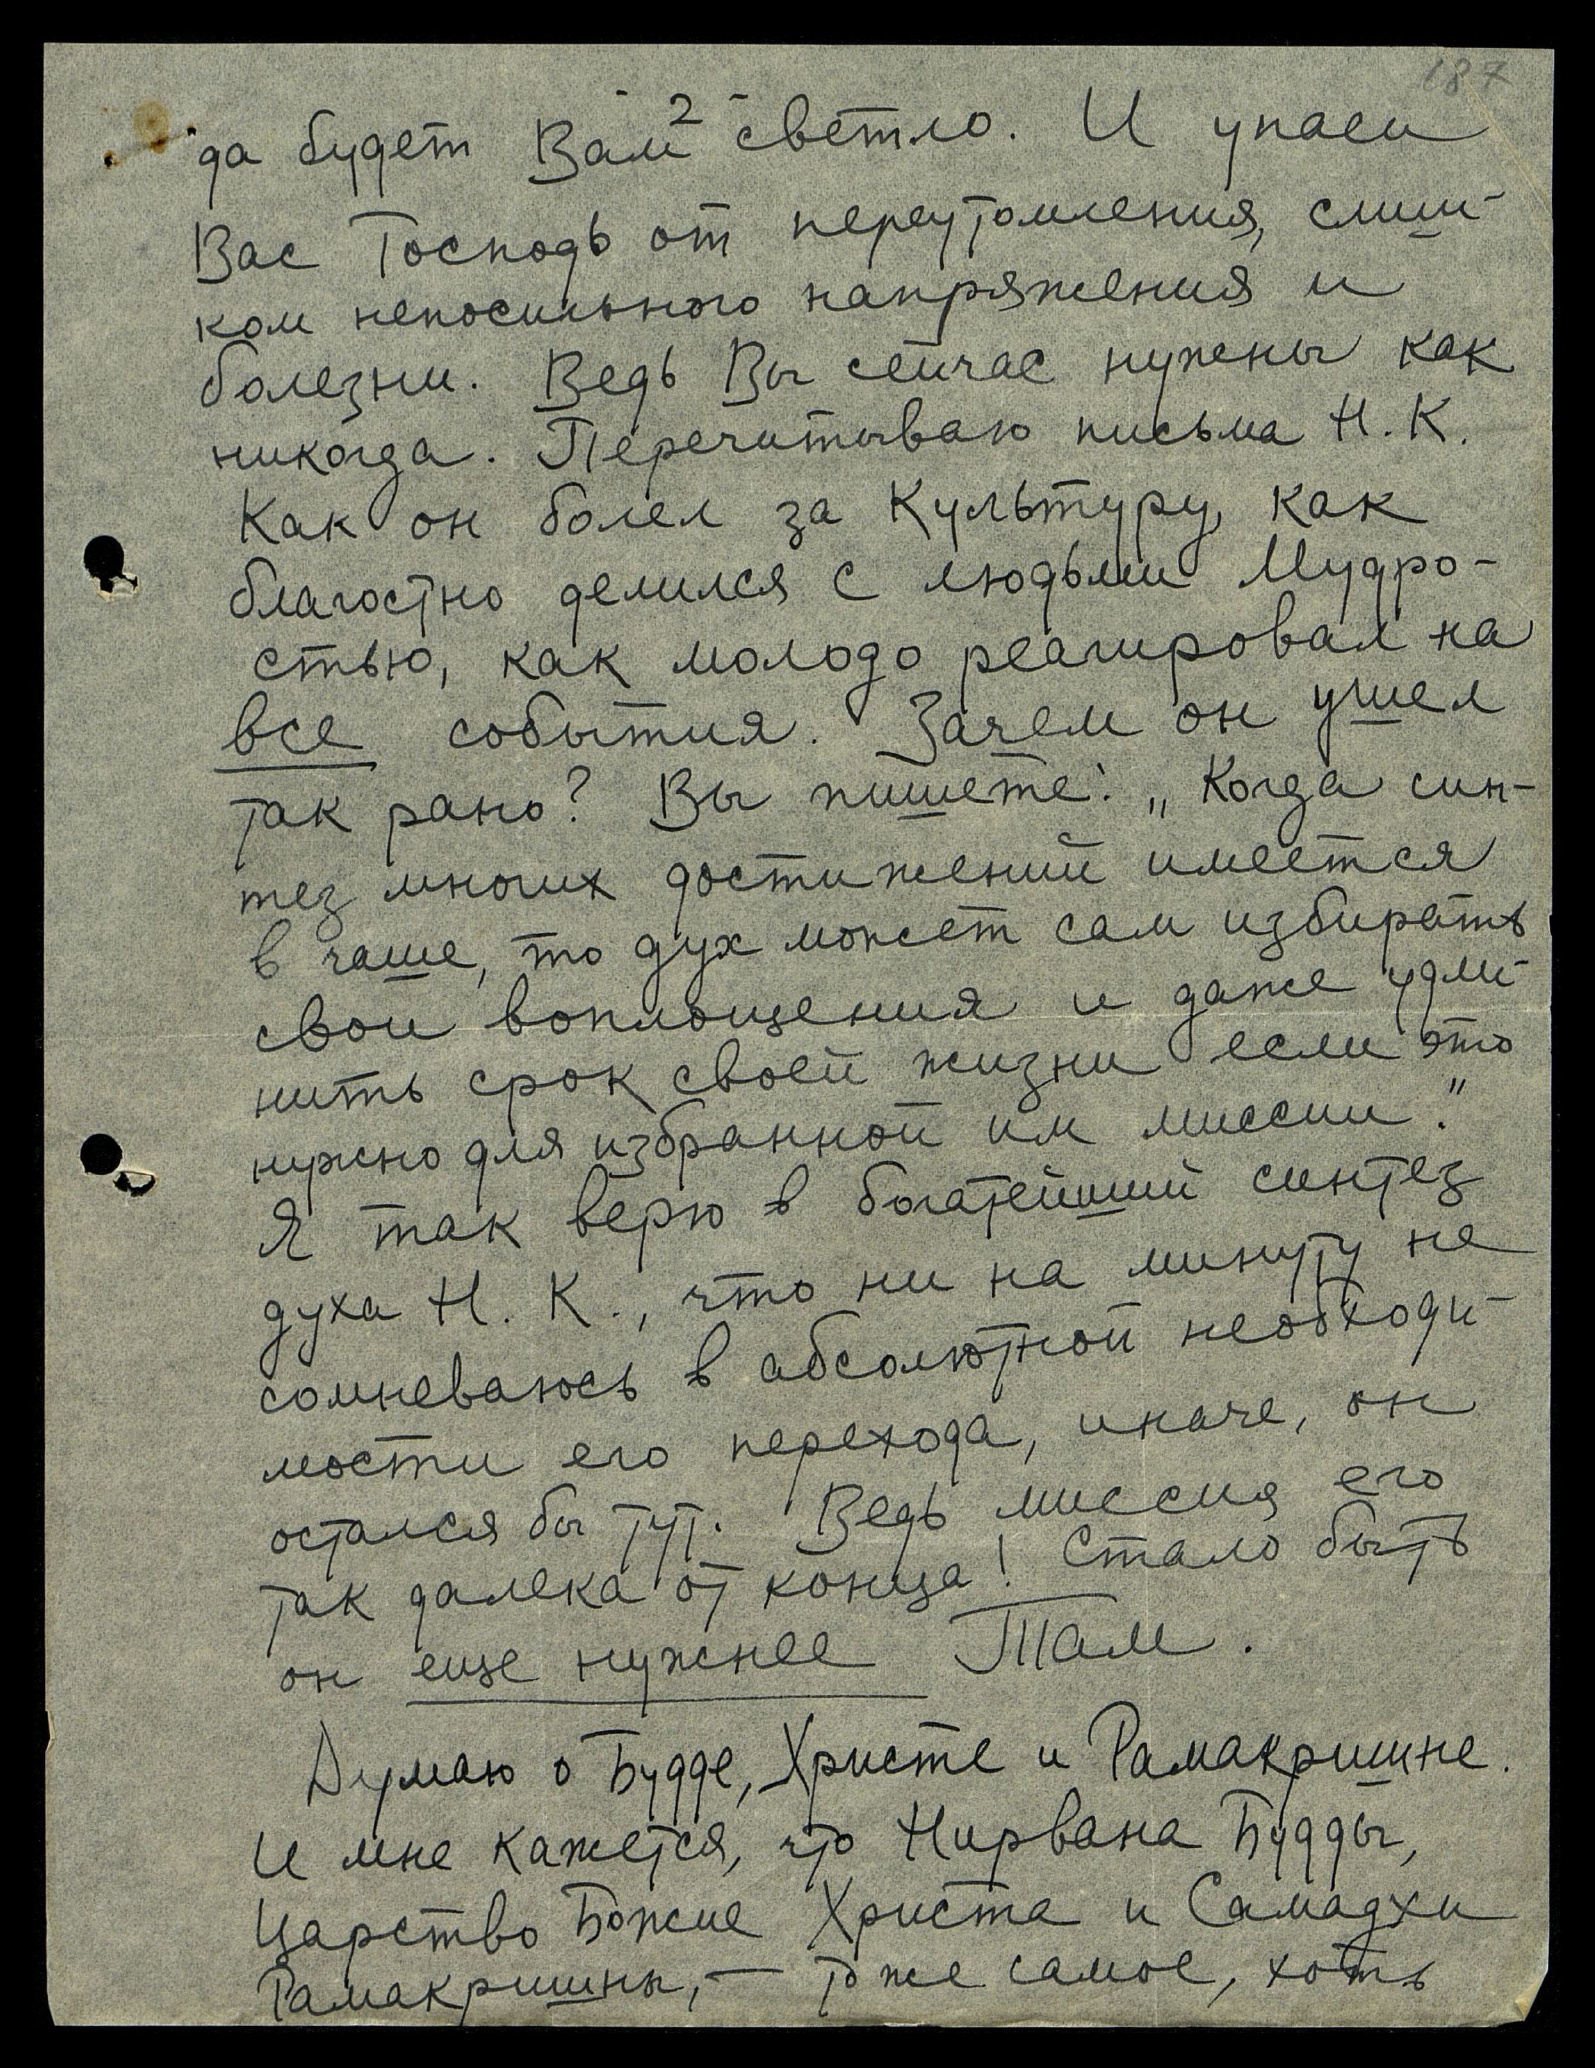 187
- 2 -
да будет Вам светло. И упаси
Вас Господь от переутомления, слиш-
ком непосильного напряжения и
болезни. Ведь Вы сейчас нужны как
никогда. Перечитываю письма Н. К.
Как он болел за Культуру, как
благостно делился с людьми Мудро-
стью, как молодо реагировал на
все события. Зачем он ушел
так рано? Вы пишете: „Когда син-
тез многих достижений имеется
в чаше, то дух может сам избирать
свои воплощения и даже удли-
нить срок своей жизни если это
нужно для избранной им миссии."
Я так верю в богатейший синтез
духа Н. К., что ни на минуту не
сомневаюсь в абсолютной необходи-
мости его перехода, иначе, он
остался бы тут. Ведь миссия его
так далека от конца! Стало быть
он еще нужнее Там.
Думаю о Будде, Христе и Рамакришне.
И мне кажется, что Нирвана Будды,
Царство Божие Христа и Самадхи
Рамакришны, — то же самое, хоть